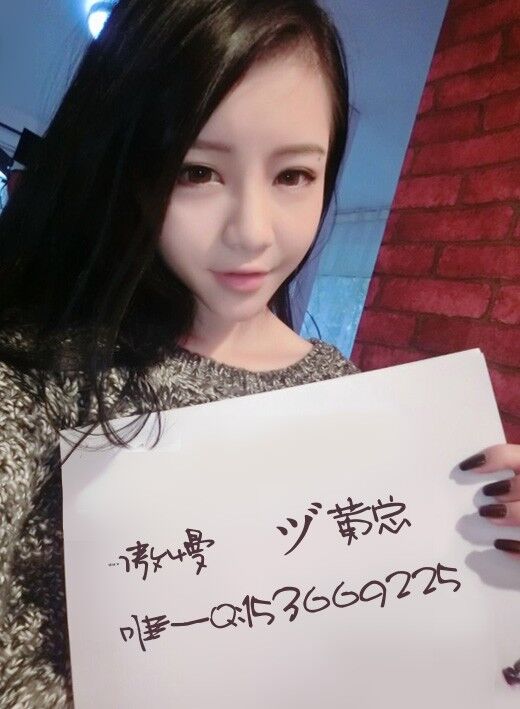 傲慢 ヅ黄总
唯一Q:153669225